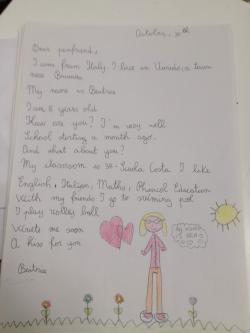 October, 30th
Dear penfriend,
I am from Italy. I live in a town
near
My name is Beatrice
I am 8 years old
How are you? I'm very well
School starting a month ago.
And what about you?
My classroom is 3A- Scuola Costa I like
English, Italian, Maths, Phisical Education
With my friends I go to swiming pool
I play volley ball
Write me soon
A kiss for you
Beatrice